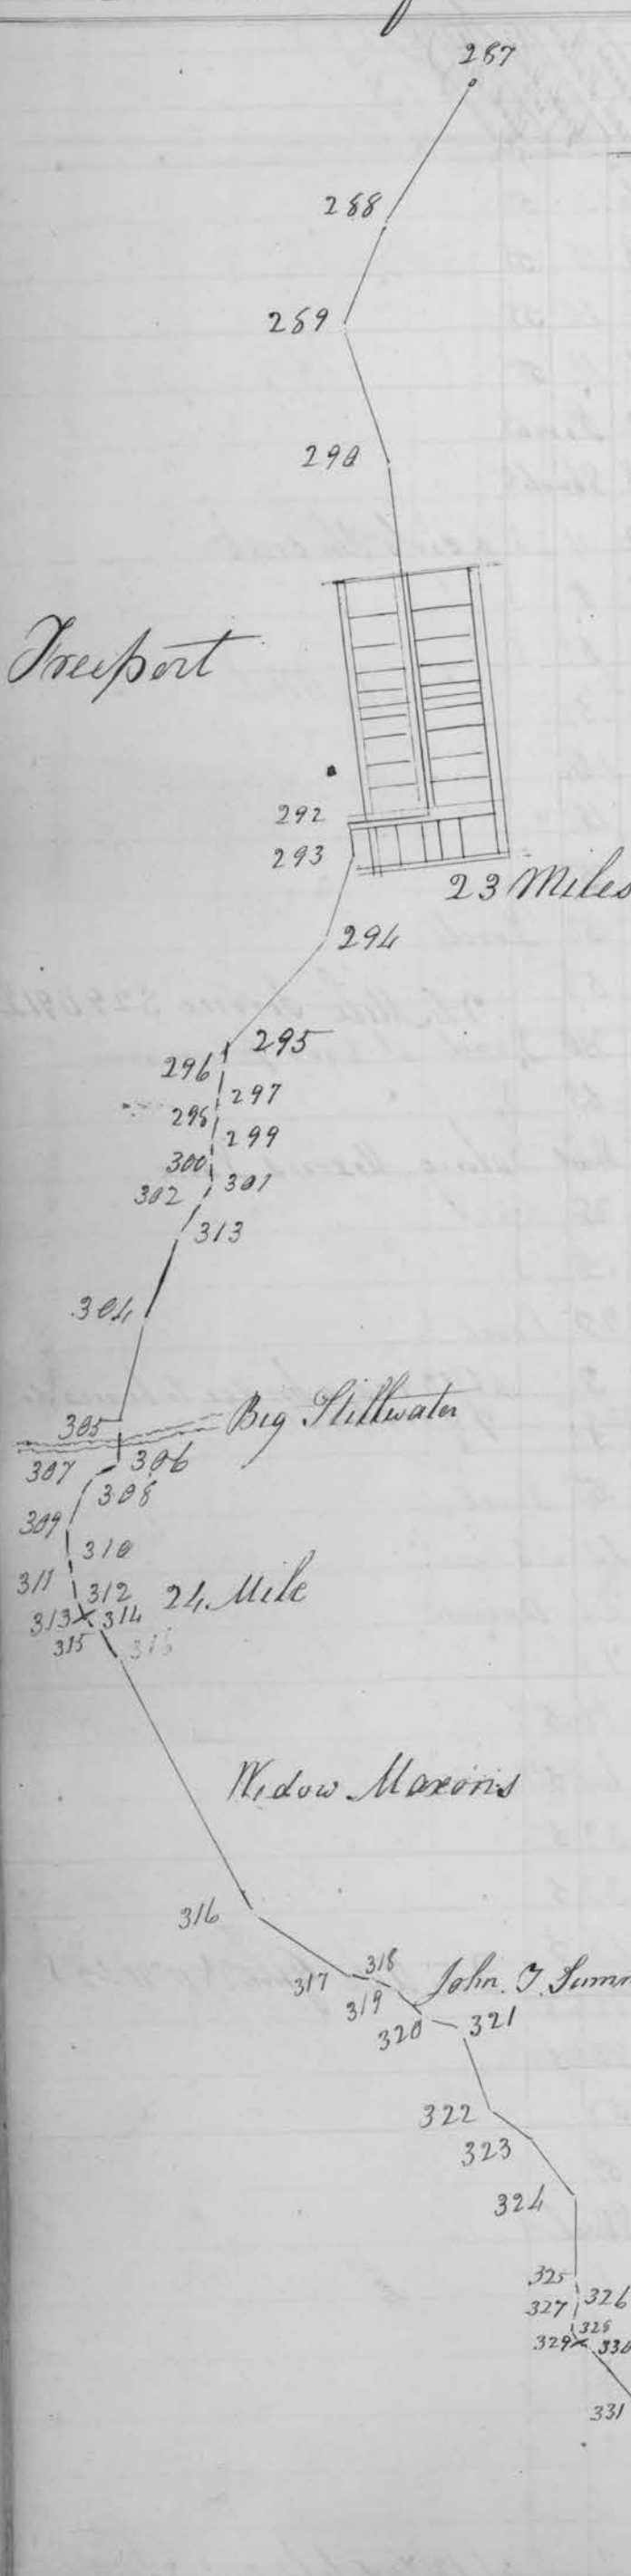 287
288
289
290
Freeport
292
293
23 Miles
294
295
296
297
298
299
300
301
302
313
304
305
Big Stillwater
307
306
308
309
310
311
312
24 Mile
313 314
315
Widow Maxons
316
318
317
John. T.
319
320
321
322
323
324
325
326
327
328
329
330
331